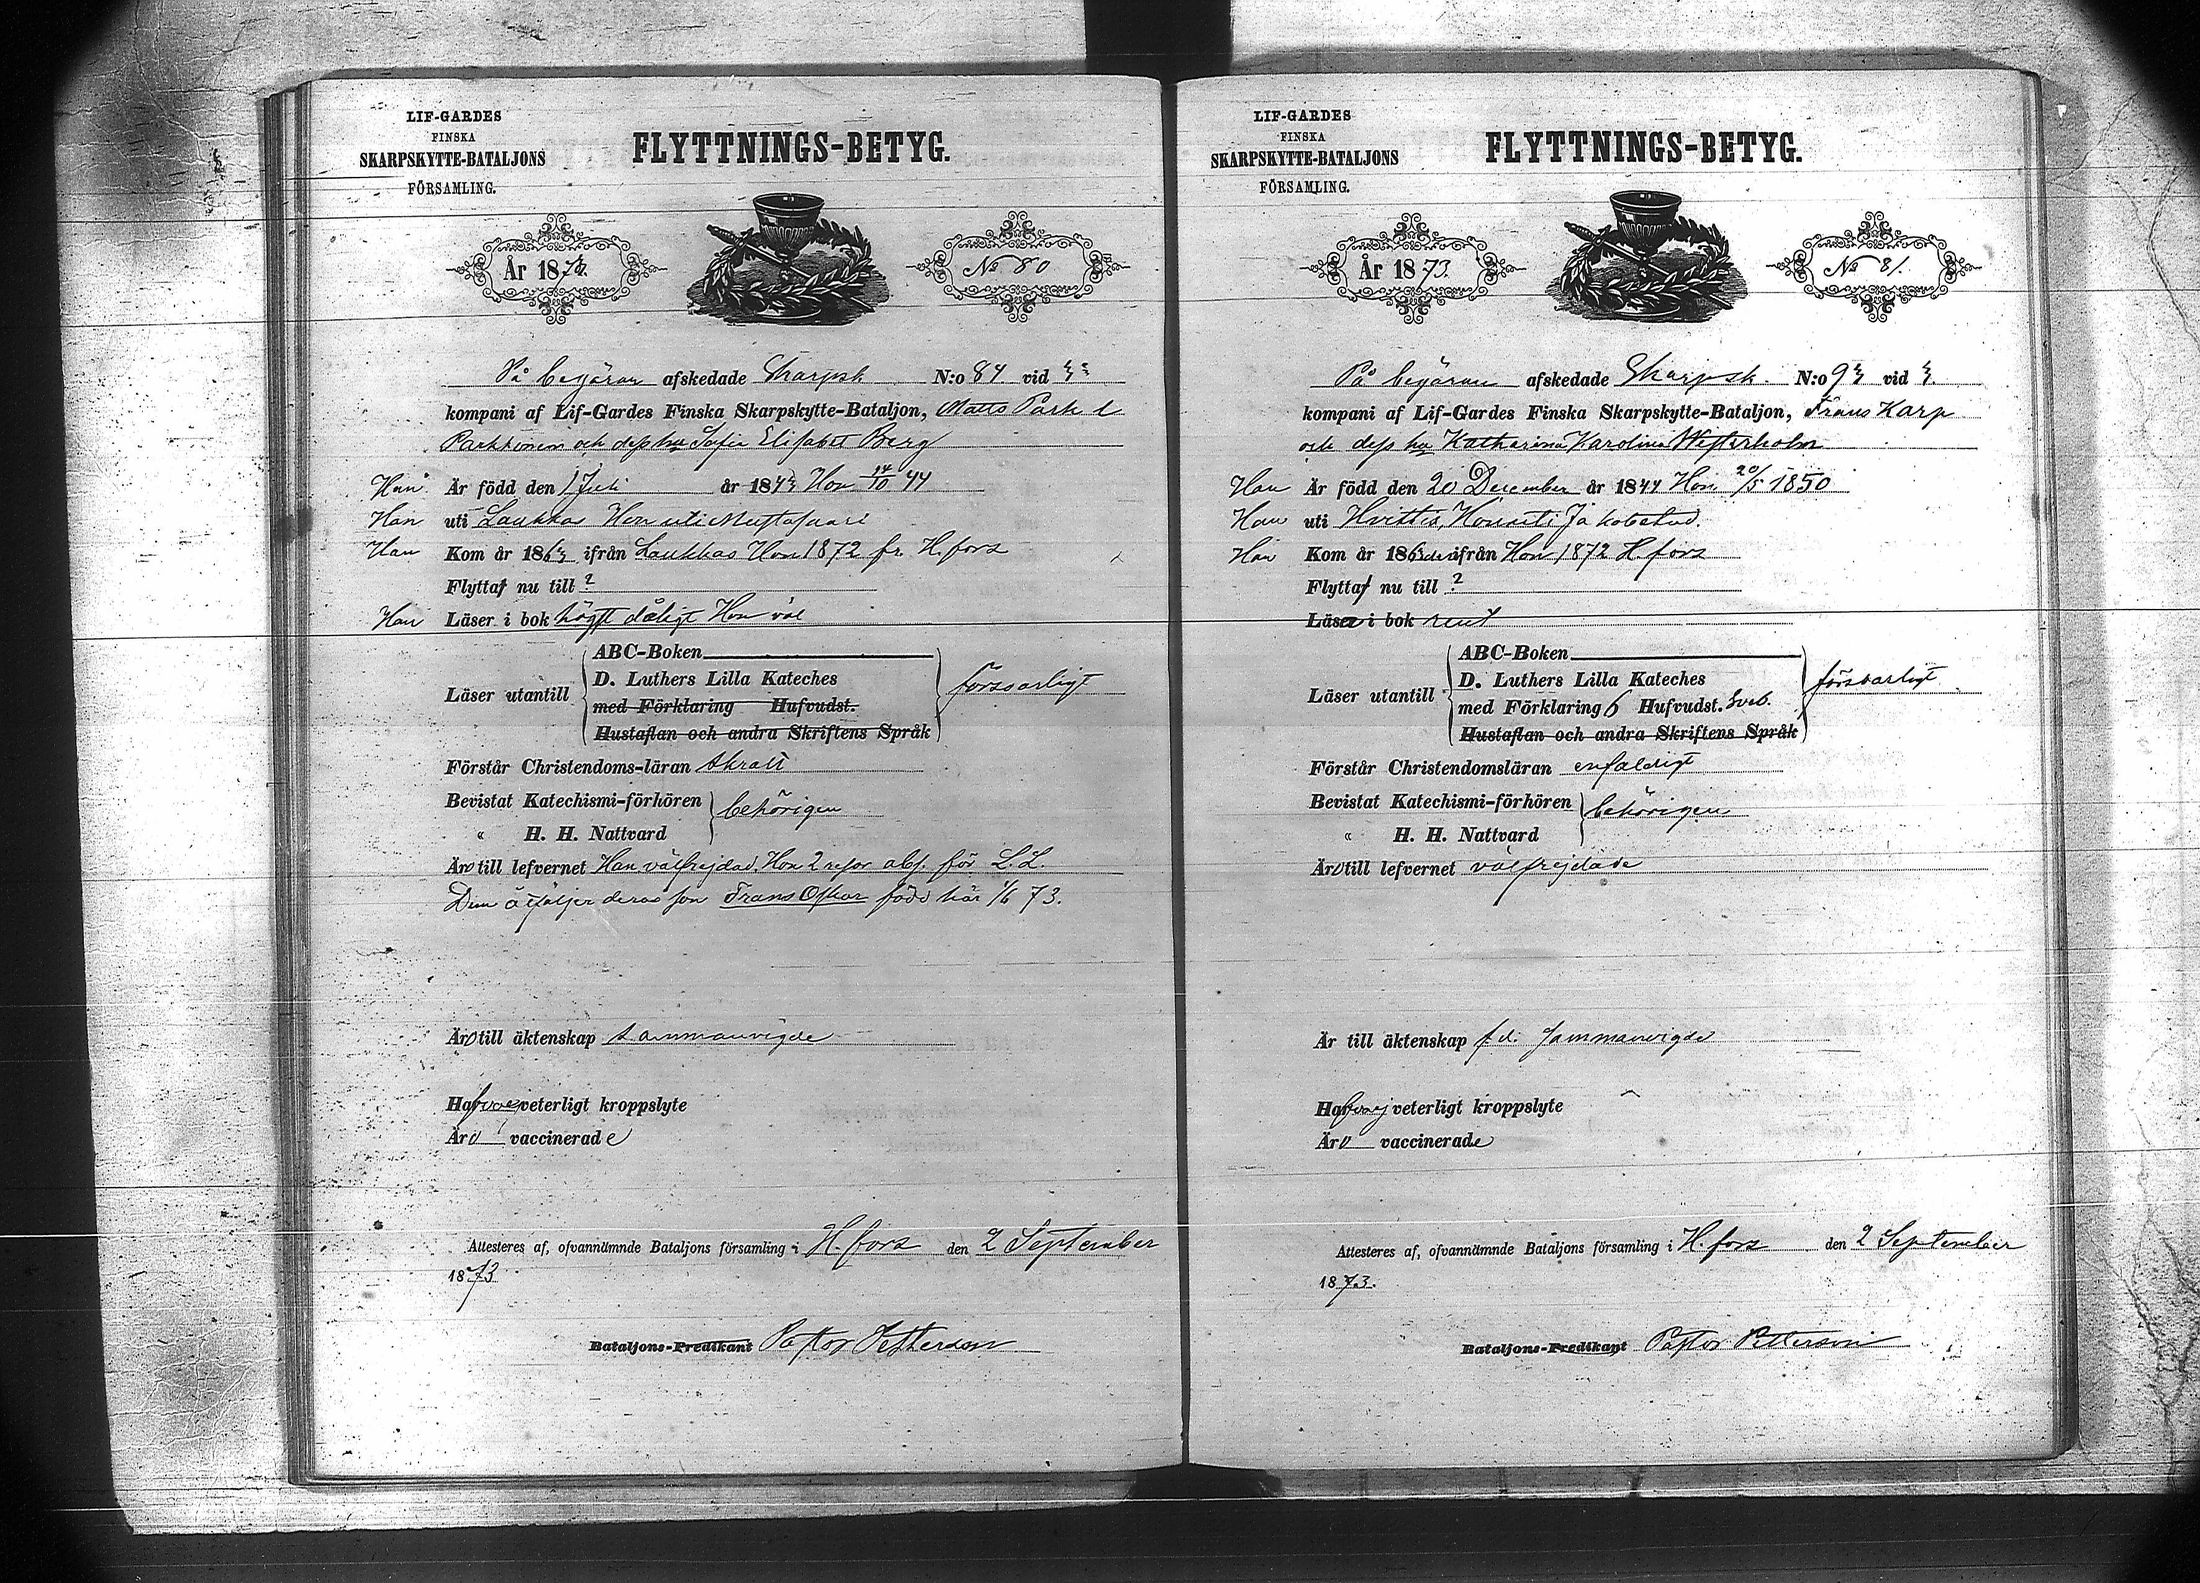 LIF-GARDES
FINSKA
SKARPSKYTTE-BATALJONS
FÖRSAMLING.
FLYTTNINGS-BETYG.
År 1873.
No 80
På begäran afskedade Skarpsk N:o 84 vid
kompani af Lif-Gardes Finska Skarpskytte-Bataljon, Matts Park l
Parkkonen och dess hu Sofie Elisabet Berg
Han Är född den 1 Juli år 1843 Hon 14/10 44
Han uti Laukkas Hon uti Mustasaari
Han Kom år 1863 ifrån Laukkas Hon 1872 fr. H.fors
Flytta nu till ?
Han Läser i bok högst dåligt Hon väl
Läser utantill
ABC-Boken
D. Luthers Lilla Kateches
med Förklaring Hufvudst.
Hustaflan och andra Skriftens Språk
försvarligt
Förstår Christendoms-läran skralt
Bevistat Katechismi-förhören
„ H. H. Nattvard
behörigen
Äro till lefvernet Han välfrejdad. Hon 2 resor abs. för L.L.
Dem åtföljer deras son Frans Oskar född här 1/6 73.
Äro till äktenskap sammanvigde
Hafva ej veterligt kroppslyte
Äro vaccinerade
Attesteres af, ofvannämnde Bataljons församling i H.fors den 2 September
1873
Bataljons-Predikant Pastor Petterson
LIF-GARDES
FINSKA
SKARPSKYTTE-BATALJONS
FÖRSAMLING.
FLYTTNINGS-BETYG.
År 1873.
No 81.
På begäran afskedade Skarpsk. N:o 93 vid
kompani af Lif-Gardes Finska Skarpskytte-Bataljon, Frans Karp
och dess hu Katharina Karolina Westerholm
Han Är född den 20 December år 1844 Hon 20/5 1850
Han uti Hvittis, Hon uti Jakobstad.
Han Kom år 186 ifrån Hon 1872 H.fors
Flytta nu till ?
Läsa i bok rent
Läser utantill
ABC-Boken
D. Luthers Lilla Kateches
med Förklaring 6 Hufvudst. Sveb.
Hustaflan och andra Skriftens Språk
försvarligt
Förstår Christendomsläran enfaldigt
Bevistat Katechismi-förhören
„ H. H. Nattvard
behörigen
Äro till lefvernet välfrejdade
Är till äktenskap f.d. Sammanvigde
Hafva ej veterligt kroppslyte
Äro vaccinerade
Attesteres af, ofvannämnde Bataljons församling i H.fors den 2 September
1873.
Bataljons-Predikant Pastor Petterson